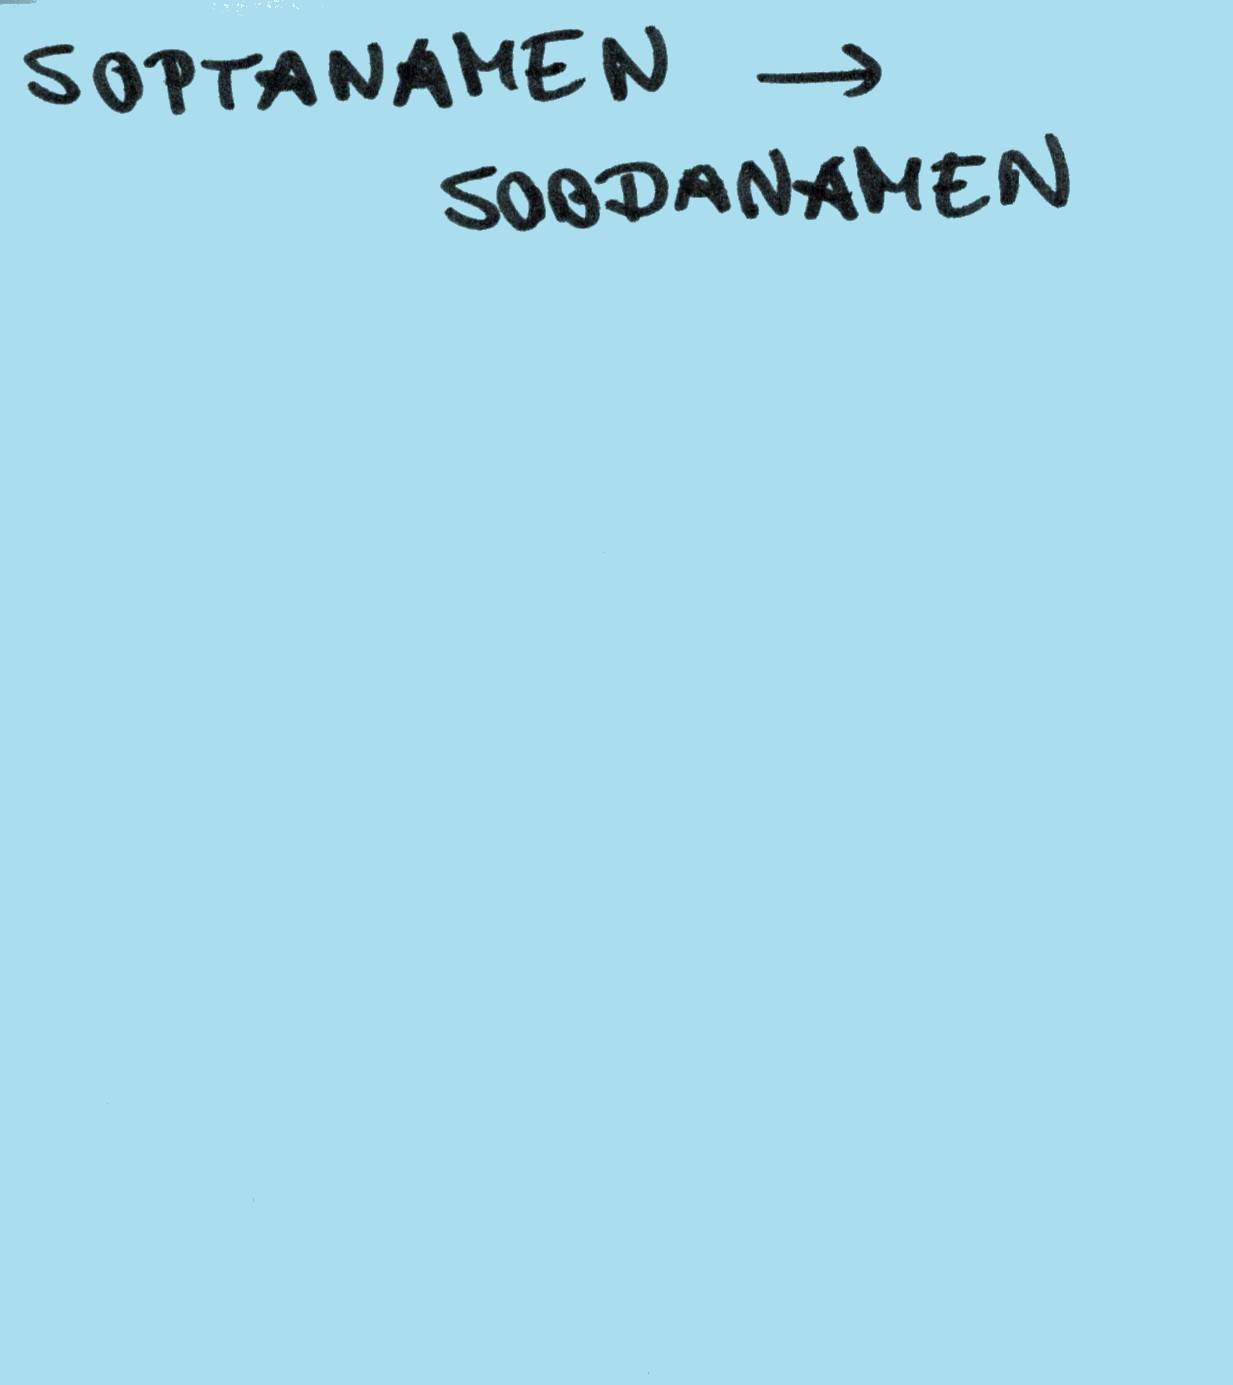 SOPTANAMEN →
SOBDANAMEN